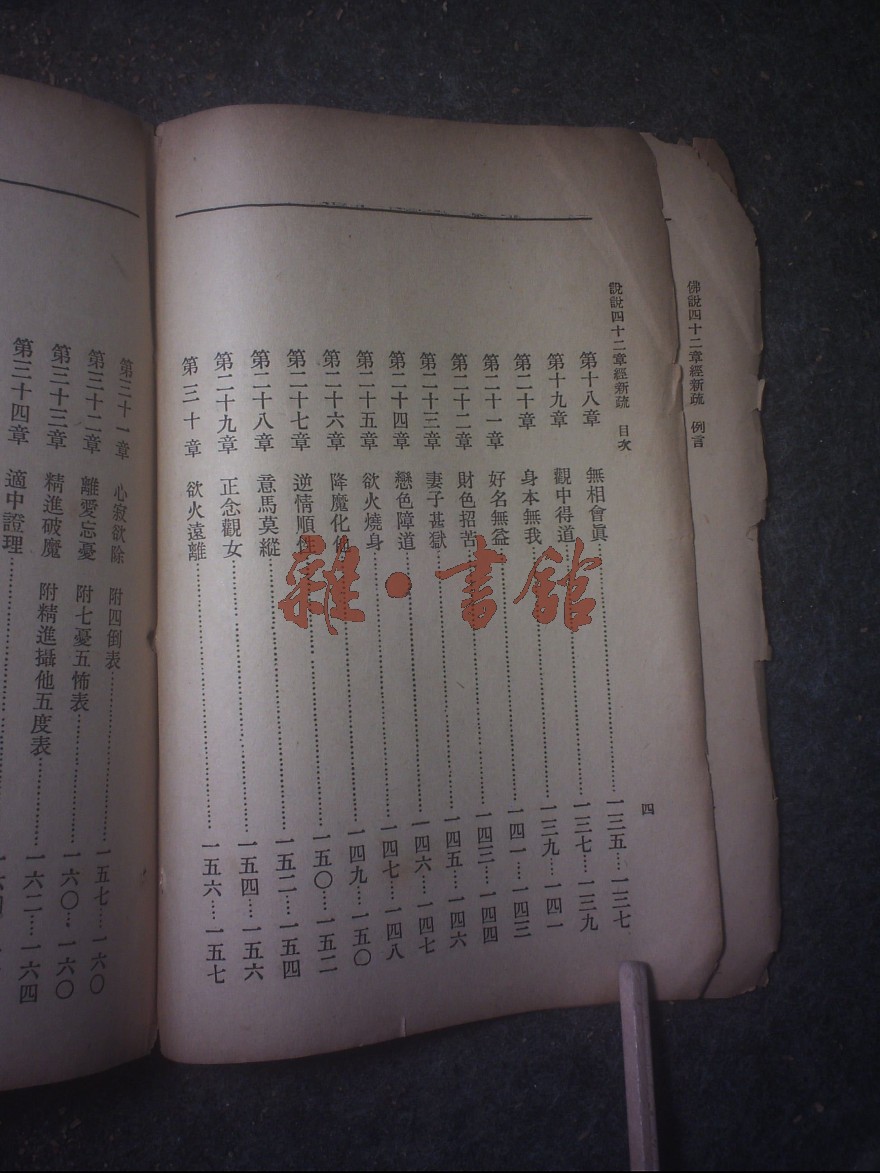 佛說四十二章經新疏　例言
說說四十二章經新疏　目次
四
第十八章　無相會眞………一三五…一三七
第十九章　觀中得道………一三七…一三九
第二十章　身本無我………一三九…一四一
第二十一章　好名無益………一四一…一四三
第二十二章　財色招苦………一四三…一四四
第二十三章　妻子甚獄………一四五…一四六
第二十四章　戀色障道………一四六…一四七
第二十五章　欲火燒身………一四七…一四八
第二十六章　降魔化他………一四九…一五〇
第二十七章　逆情順性………一五〇…一五二
第二十八章　意馬莫縱………一五二…一五四
第二十九章　正念觀女………一五四…一五六
第三十章　欲火遠離………一五六…一五七
第三十一章　心寂欲除　附四倒表………一五七…一六〇
第三十二章　離愛忘憂　附七憂五怖表………一六〇…一六〇
第三十三章　精進破魔　附精進攝他五度表………一六二…一六四
第三十四章　適中證理………
雜·書館